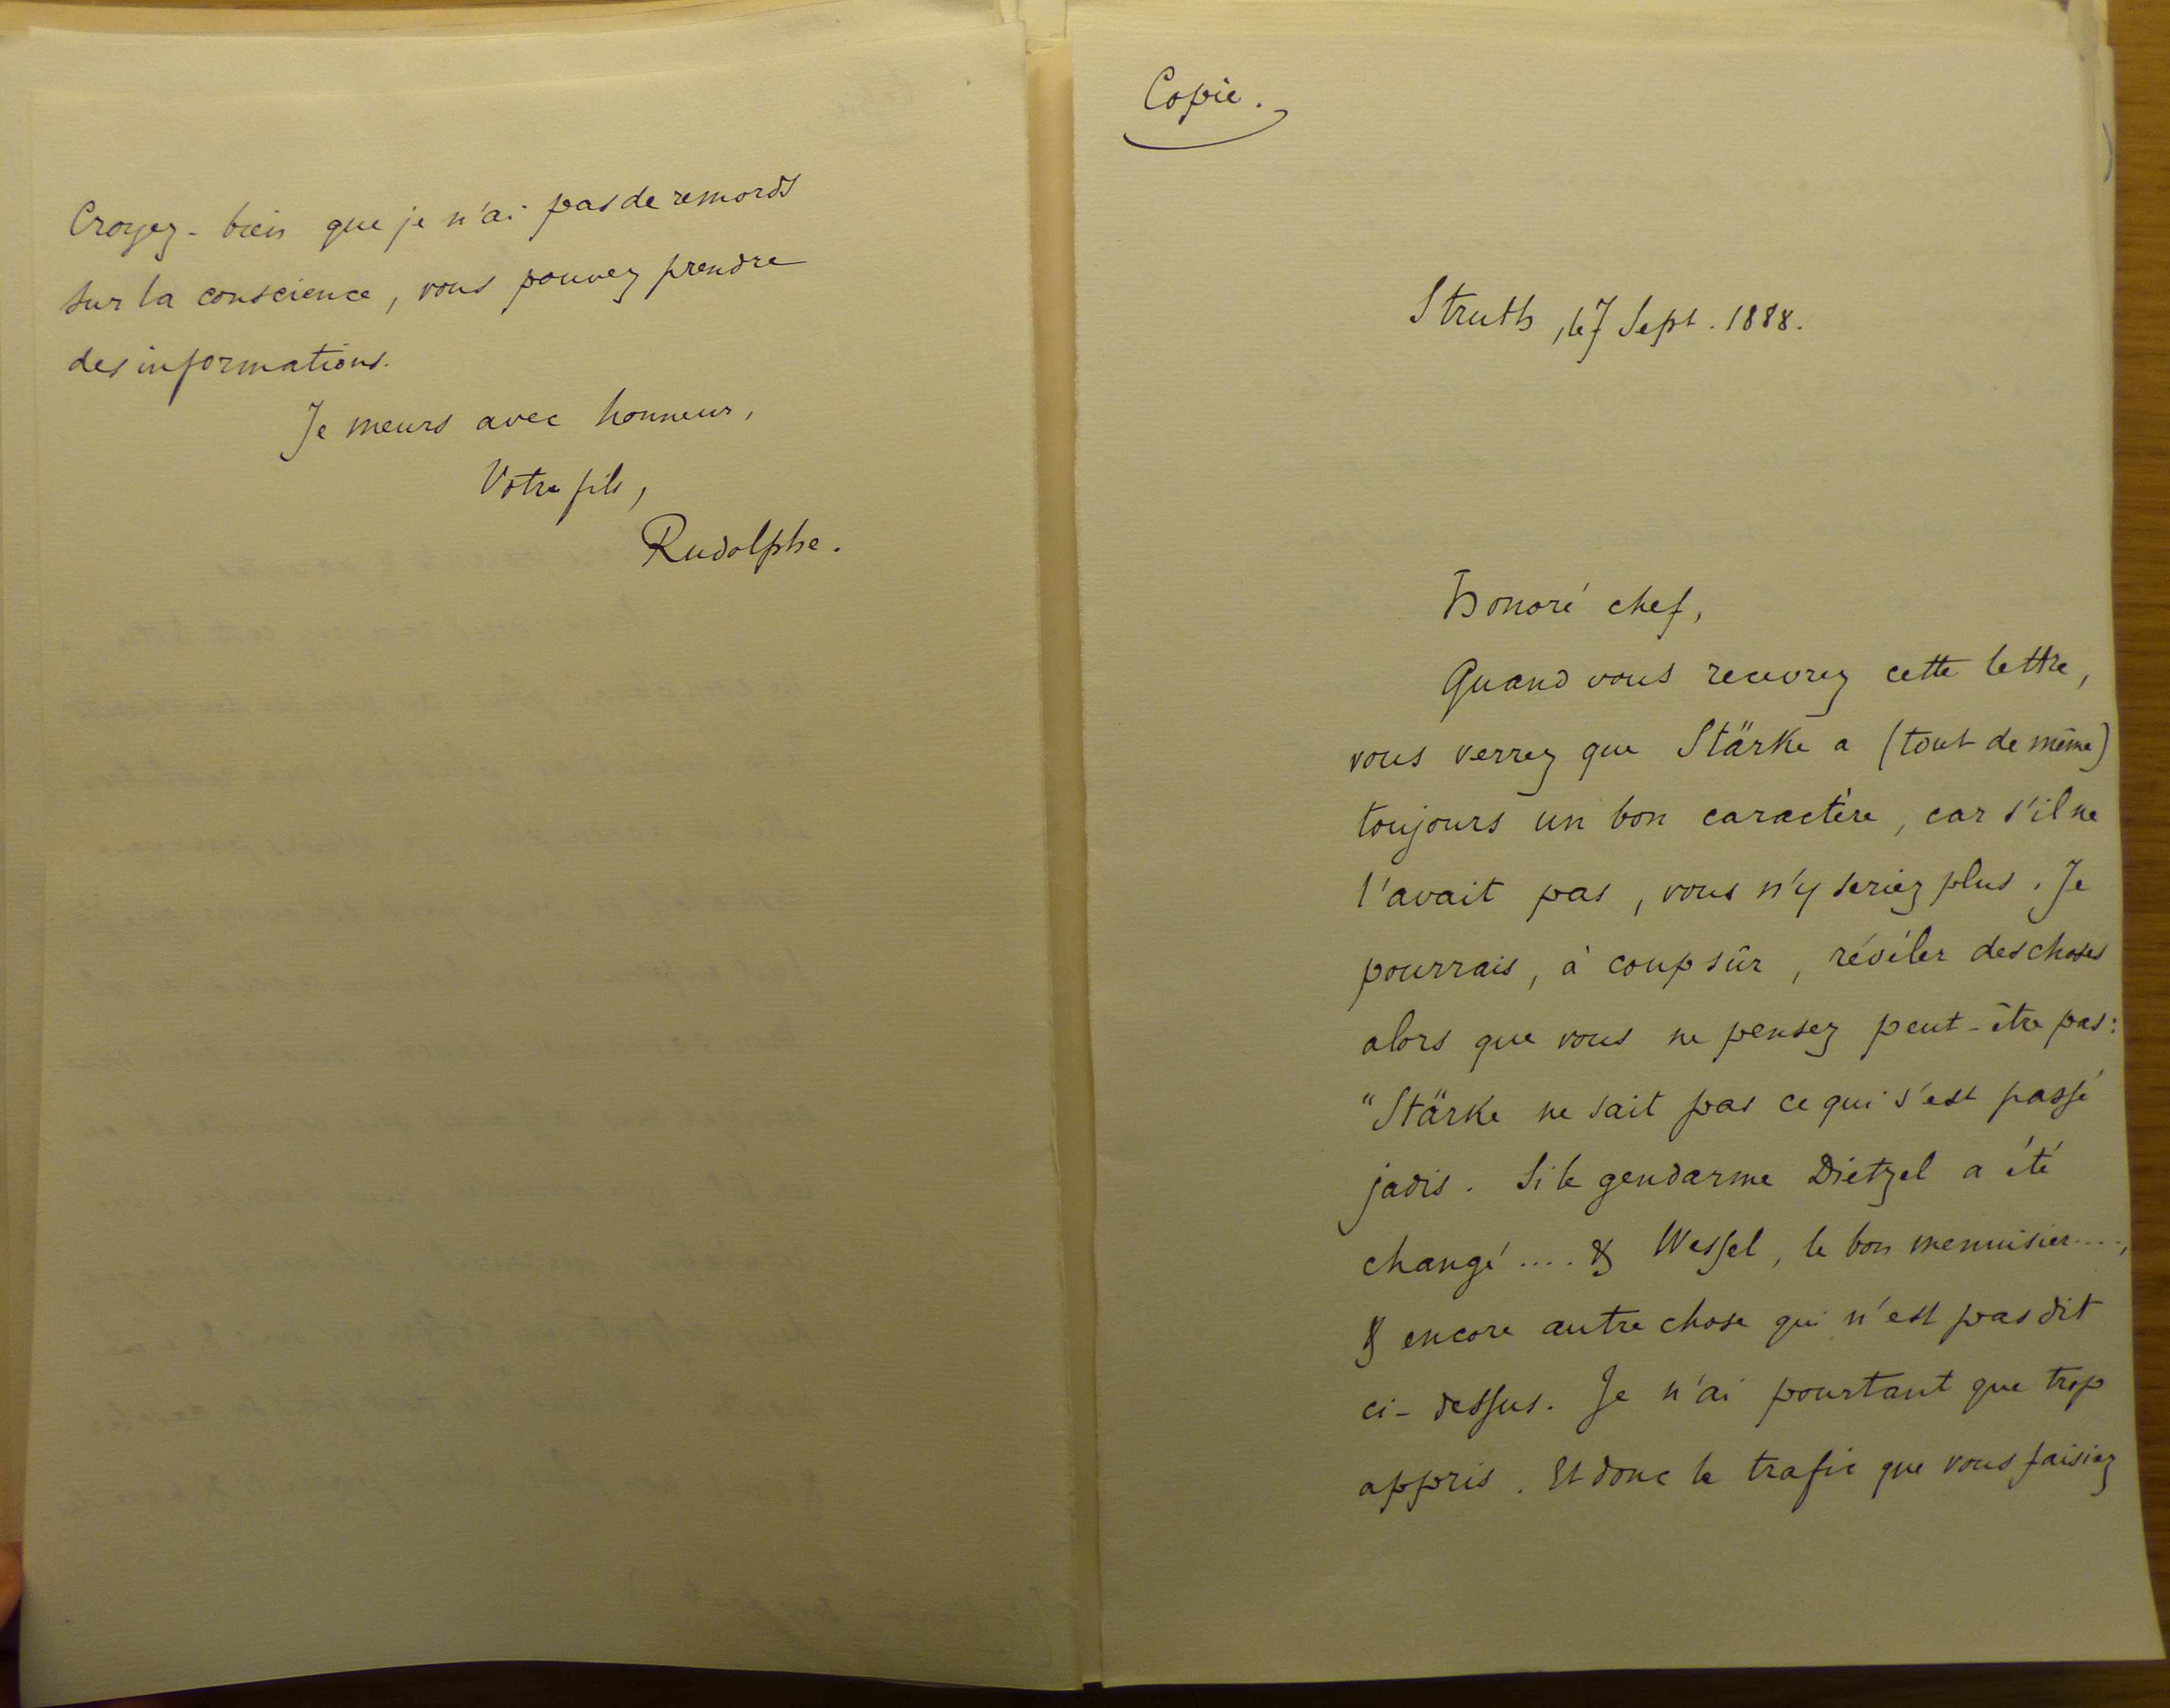 Croyez-bien que je n'ai pas de remords
sur la conscience, vous pouvez prendre
des informations.
Je meurs avec honneur,
Votre fils,
Rudolphe.
Copie.
Struth, le 7 Sept. 1888.
Honoré chef,
Quand vous recevrez cette lettre,
vous verrez que Stärke a (tout de même)
toujours un bon caractère, car s'il ne
l'avait pas, vous n'y seriez plus. Je
pourrais, à coup sûr, révéler des choses
alors que vous ne pensez peut-être pas:
"Stärke ne sait pas ce qui s'est passé
jadis. Si le gendarme Dietzel a été
changé .... & Wessel, le bon menuisier....,
& encore autre chose qui n'est pas dit
ci-dessus. Je n'ai pourtant que trop
appris. Et donc le trafic que vous faisiez